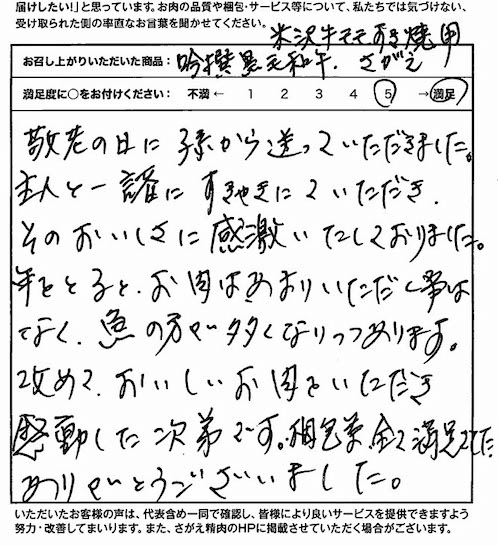 届けしたい!」と思っています。お肉の品質や梱包・サービス等について、私たちでは気づけない、
受け取られた側の率直なお言葉を聞かせてください。
米沢牛モモすき焼用
お召し上がりいただいた商品: 吟撰黒毛和牛. さがえ
満足度に○をお付けください: 不満 ← 1 2 3 4 5 → 満足
敬老の日に孫から送っていただきました。
主人と一諸にすきやきにていただき.
そのおいしさに感激いたしております。
年をとると、お肉はあまりいただく事は
なく、魚の方が多くなりつつあります。
改めて、おいしいお肉をいただき
感動した次第です。梱包等、全て満足でした
ありがとうございました。
いただいたお客様の声は、代表含め一同で確認し、皆様により良いサービスを提供できますよう
努力・改善してまいります。また、さがえ精肉のHPに掲載させていただく場合がございます。